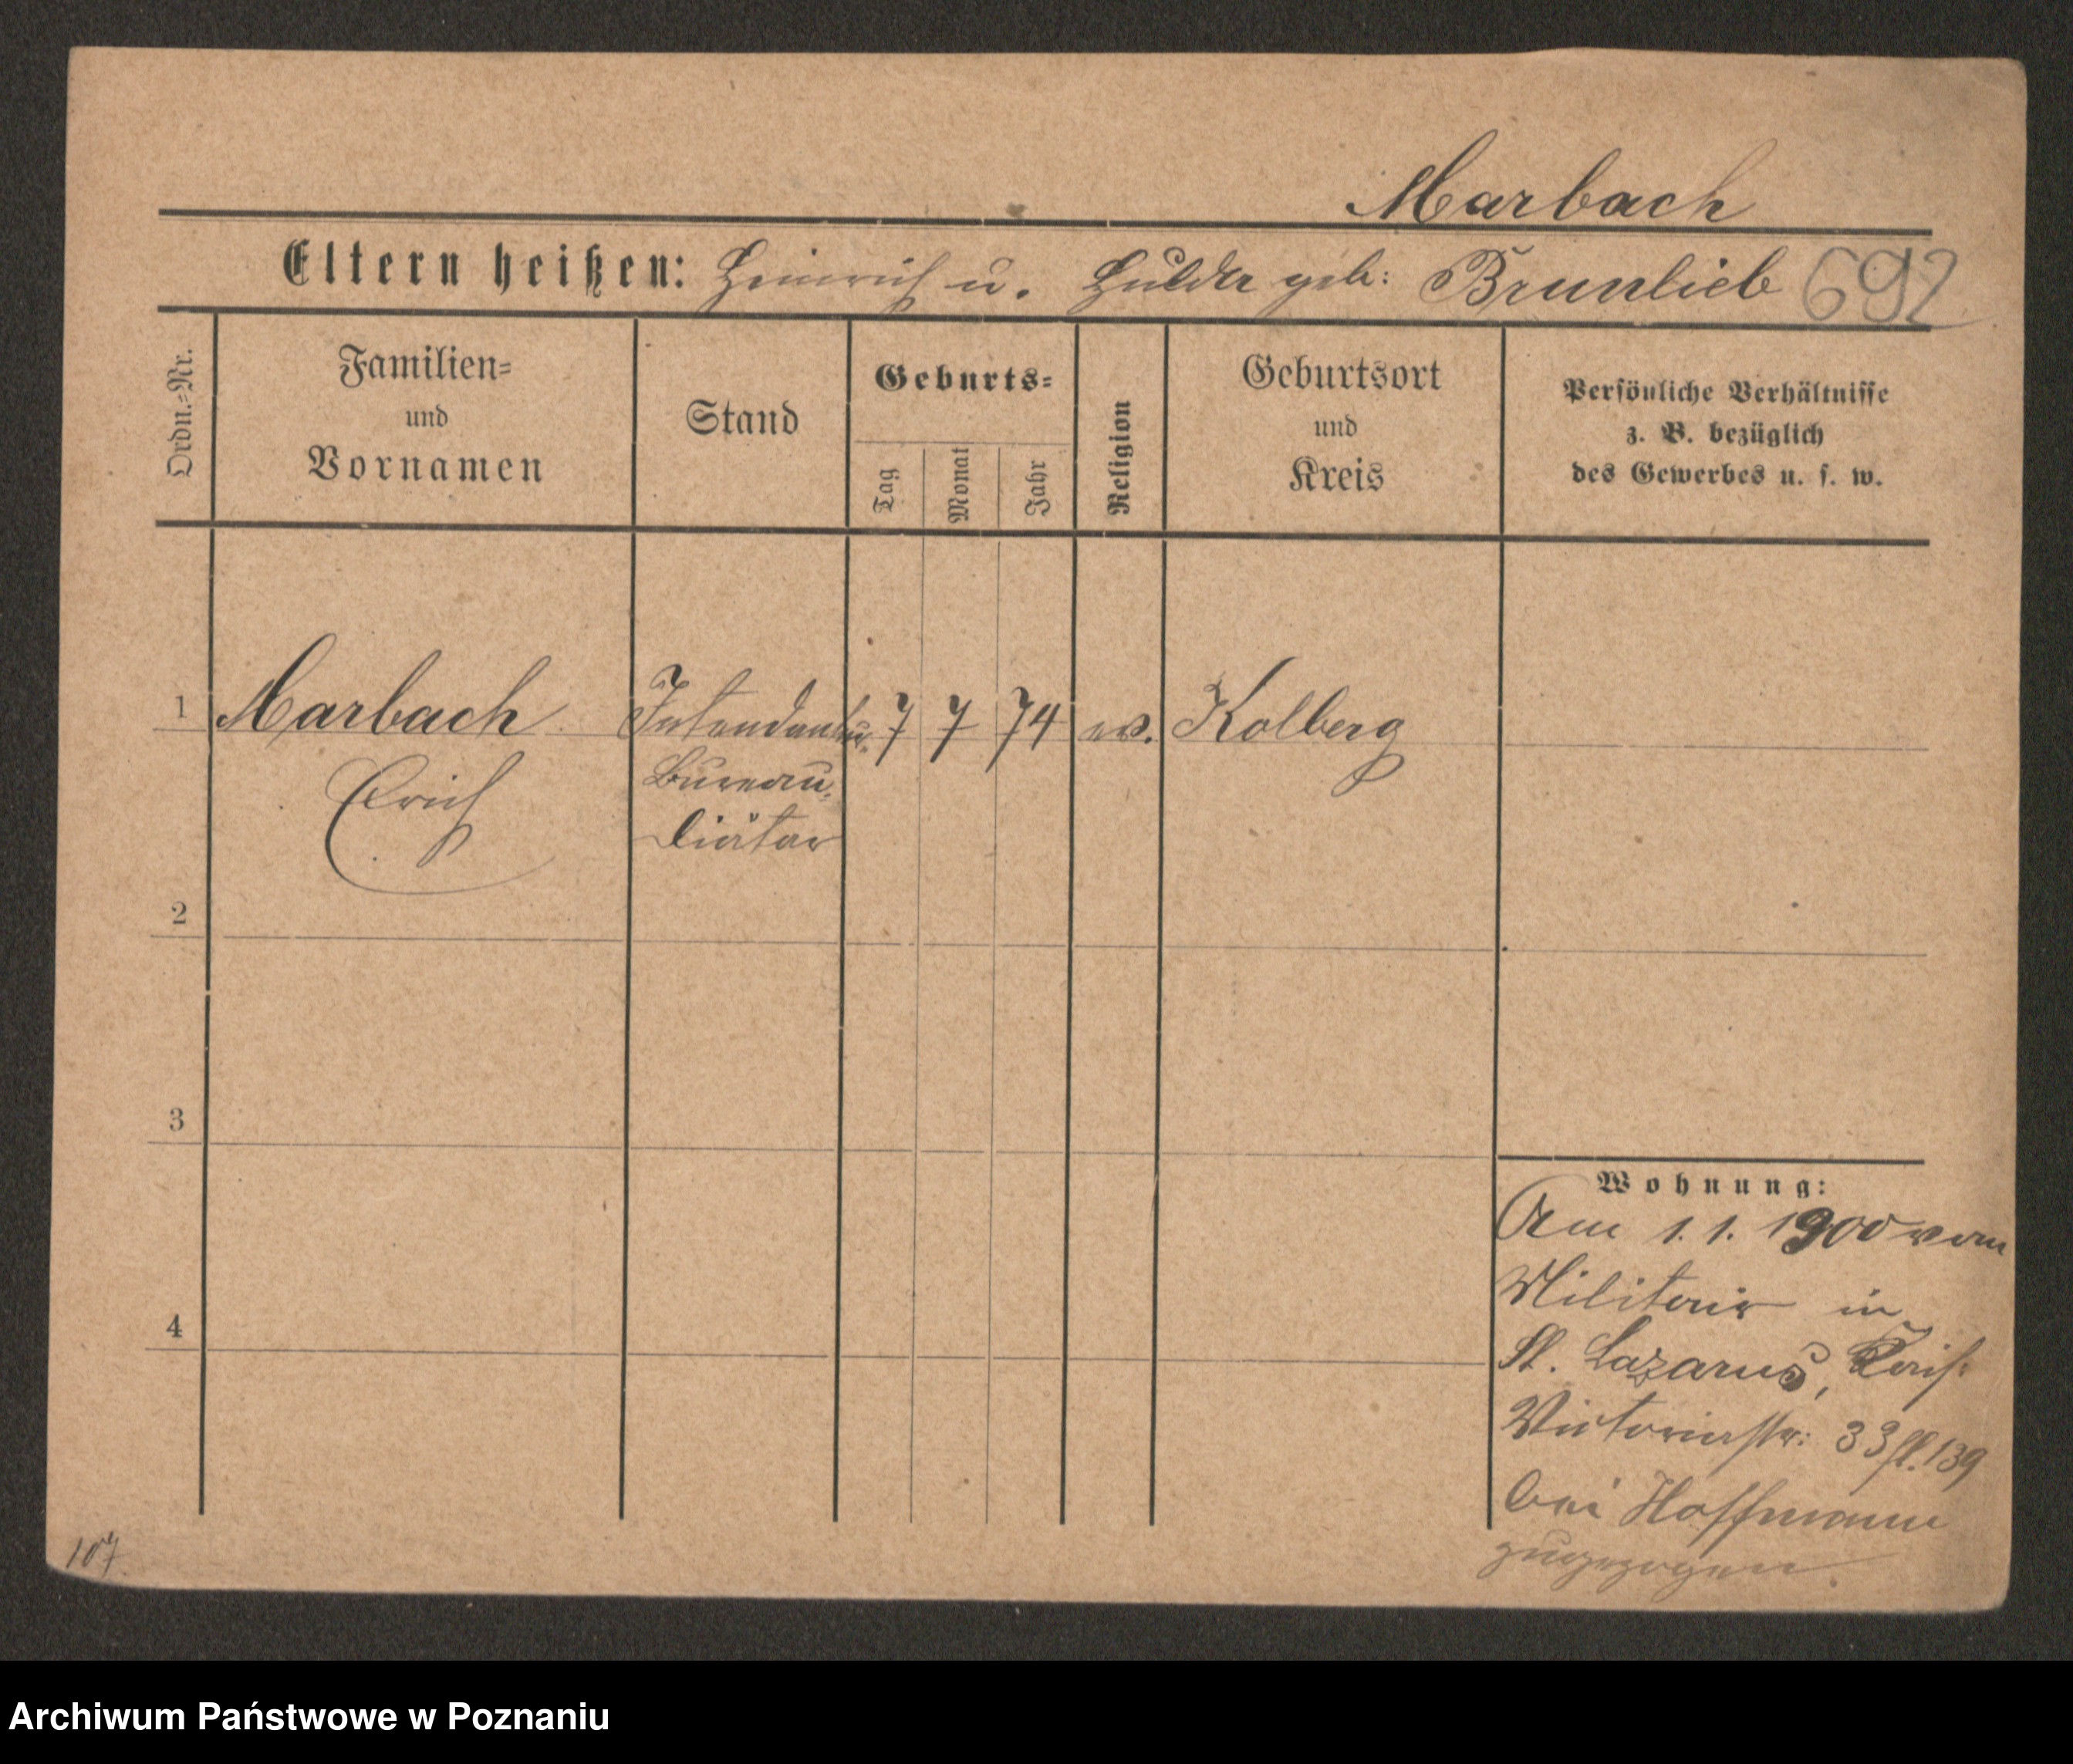 Marbach
Eltern heißen: Heinrich u. Hulda geb: Brunlieb 692
Ordn.=Nr.
Familien=
und
Vornamen
Stand
Geburts=
Tag
Monat
Jahr
Religion
Geburtsort
und
Kreis
Persönliche Verhältnisse
z. B. bezüglich
des Gewerbes u. s. w.
1 Marbach Intendantur 7 7 74 ev. Kolberg
Erich Bureau
Diätar
2
3
4
Wohnung:
Am 1. 1. 1900 vom
Militair in
St. Lazarus, Kais:
Victoriastr: 33 fl. 139
bei Hoffmann
zugezogen.
107
Archiwum Państwowe w Poznaniu